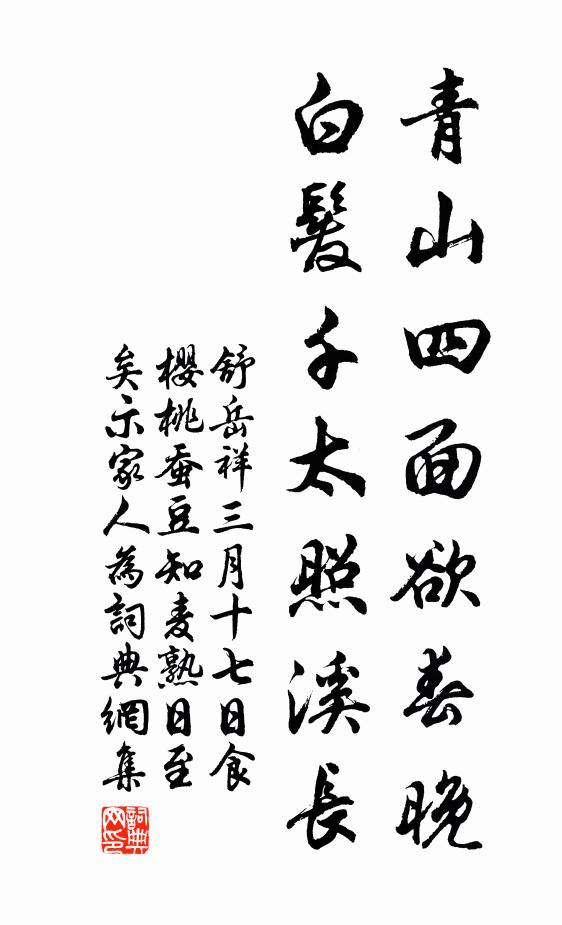 青山四面欲春晚
白髮千太照溪長
舒岳祥三月十七日食
櫻桃蚕豆知麦熟日至
矣示家人為詞典網集
詞典網印